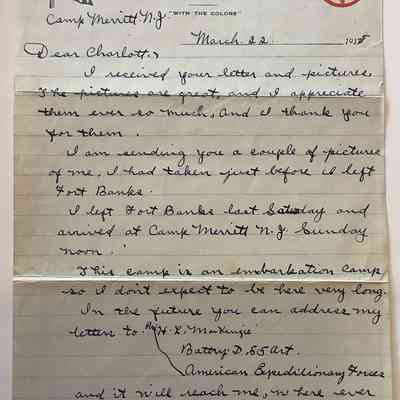 "WITH THE COLORS"
Camp Merritt N.J.
March 22 1918
Dear Charlott,
I received your letter and pictures.
The pictures are great, and I appreciate
them ever so much, and I thank you
for them.
I am sending you a couple of pictures
of me, I had taken just before I left
Fort Banks.
I left Fort Banks last Saturday and
arrived at Camp Merritt N.J. Sunday
noon.
This camp is an embarkation camp
so I don't expect to be here very long.
In the future you can address my
letter to H. L. MacKenzie
Battery D. 55 Art.
American Expeditionary Forces
and it will reach me, where ever